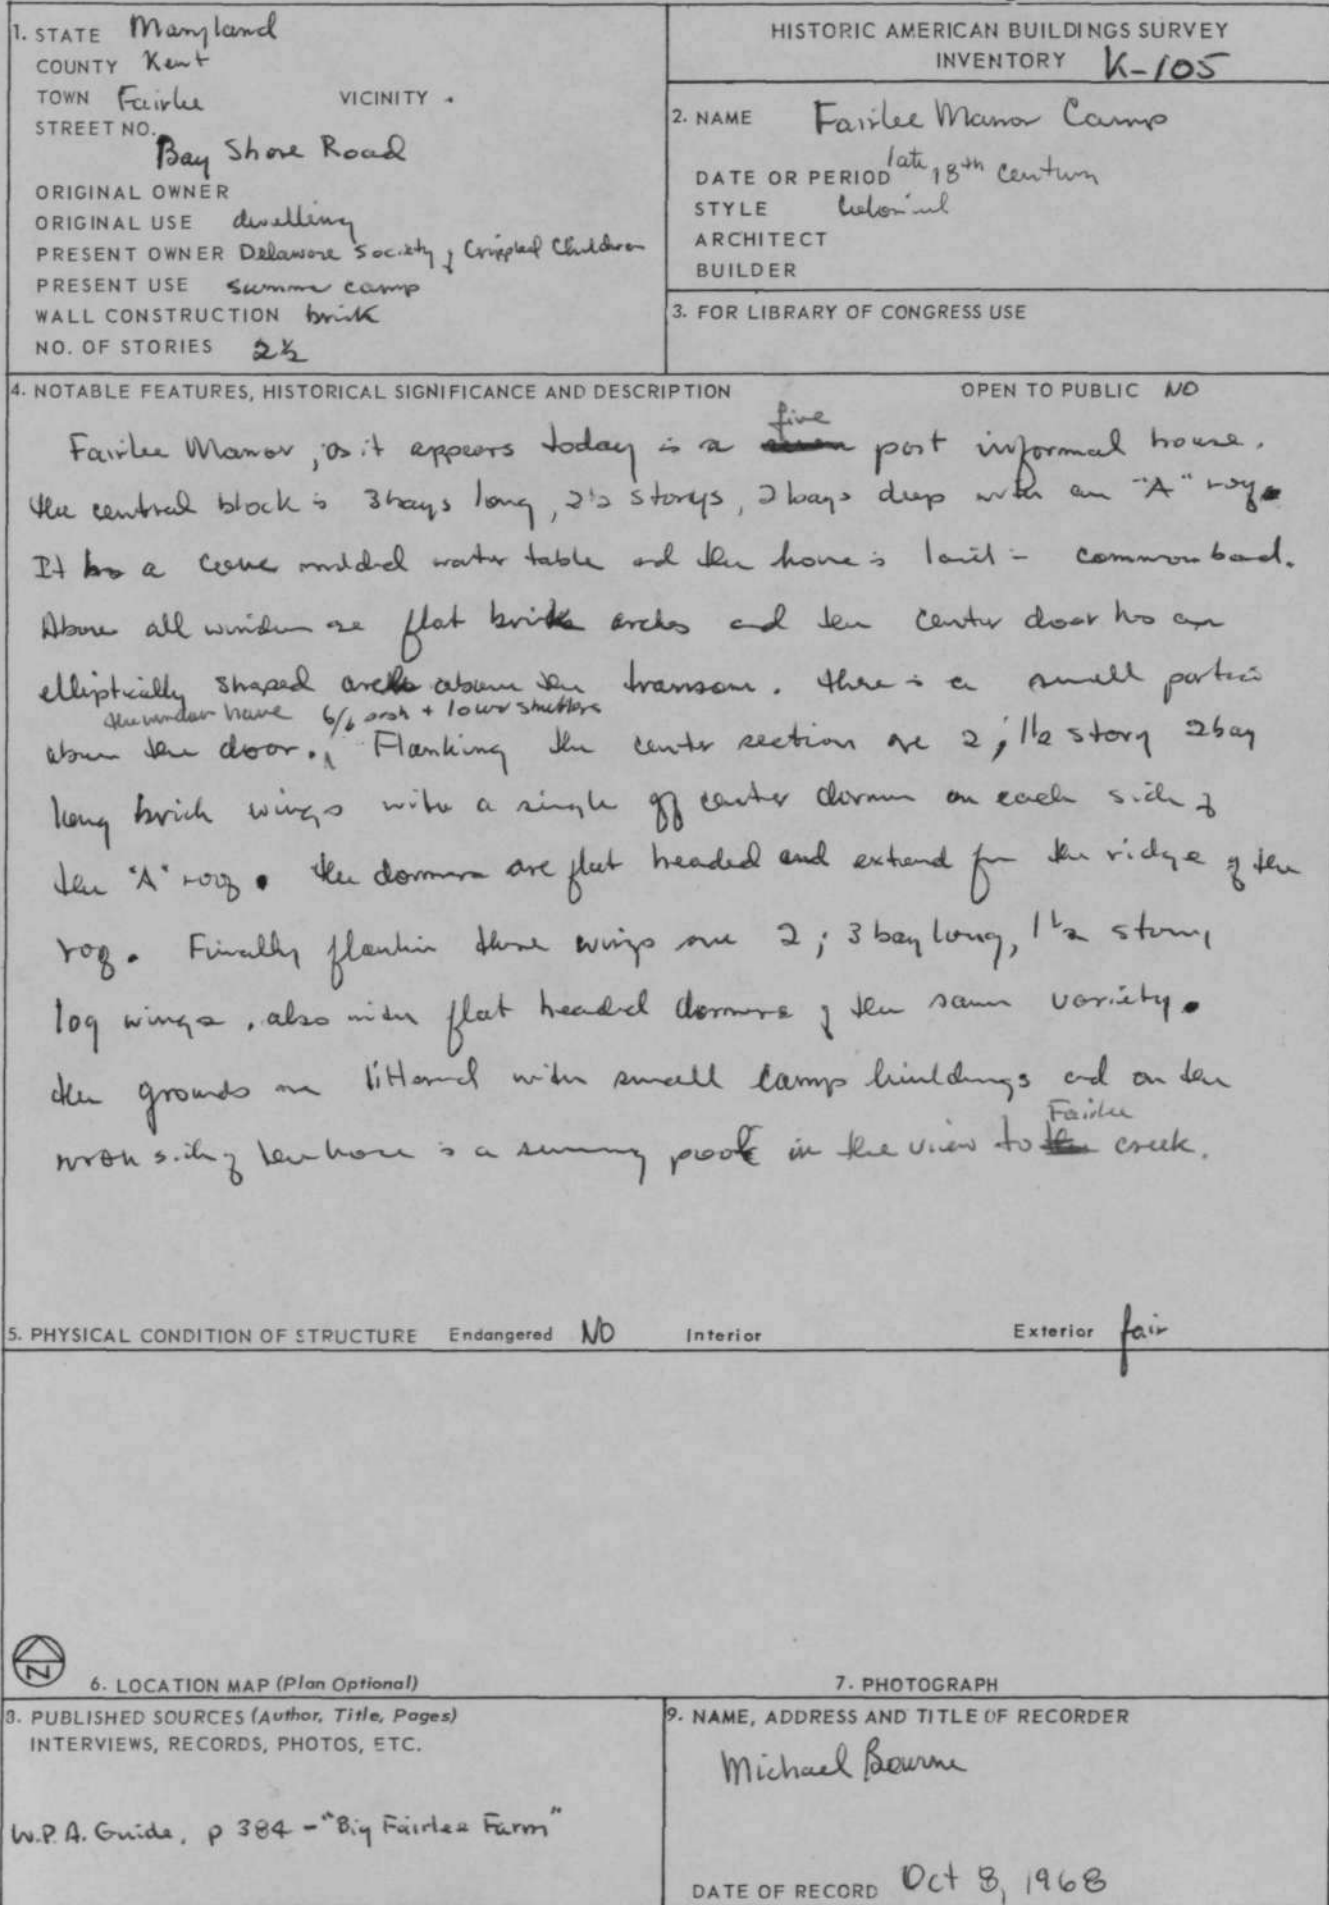 1. STATE Maryland
COUNTY Kent
TOWN Fairlee VICINITY
STREET NO.
Bay Shore Road
ORIGINAL OWNER
ORIGINAL USE dwelling
PRESENT OWNER Delaware Society of Crippled Children
PRESENT USE summer camp
WALL CONSTRUCTION brick
NO. OF STORIES 2½
HISTORIC AMERICAN BUILDINGS SURVEY
INVENTORY K-105
2. NAME Fairlee Manor Camp
DATE OR PERIOD late 18th century
STYLE Colonial
ARCHITECT
BUILDER
3. FOR LIBRARY OF CONGRESS USE
4. NOTABLE FEATURES, HISTORICAL SIGNIFICANCE AND DESCRIPTION OPEN TO PUBLIC NO
five
Fairlee Manor, as it appears today is a part informal house.
the central block is 3 bays long, 2½ storys, 2 bays deep with an "A" roof.
It has a cove molded water table and the house is laid in common bond.
Above all windows are flat brick arches and the center door has an
elliptically shaped arch above the transom. there is a small portico
the windows have 6/6 sash + louvr shutters
above the door. Flanking the center section are 2; 1½ story 2 bay
long brick wings with a single off center dormer on each side of
the "A" roof. the dormers are flat headed and extend from the ridge of the
roof. Finally flankin these wings are 2; 3 bay long, 1½ story
log wings, also with flat headed dormers of the same variety.
the grounds are littered with small camp buildings and on the
Fairlee
north side of the house is a swimming pool in the view to creek.
5. PHYSICAL CONDITION OF STRUCTURE Endangered NO Interior Exterior fair
N
6. LOCATION MAP (Plan Optional) 7. PHOTOGRAPH
8. PUBLISHED SOURCES (Author, Title, Pages)
INTERVIEWS, RECORDS, PHOTOS, ETC.
W.P.A. Guide, p 384 - "Big Fairlee Farm"
9. NAME, ADDRESS AND TITLE OF RECORDER
Michael Bourne
DATE OF RECORD Oct 8, 1968